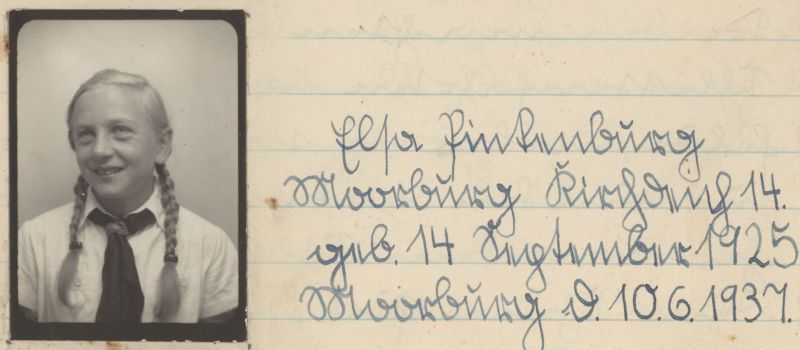 Elsa Pintenburg
Moorburg Kirchdeich 14.
geb. 14 September 1925
Moorburg d. 10.6.1937.